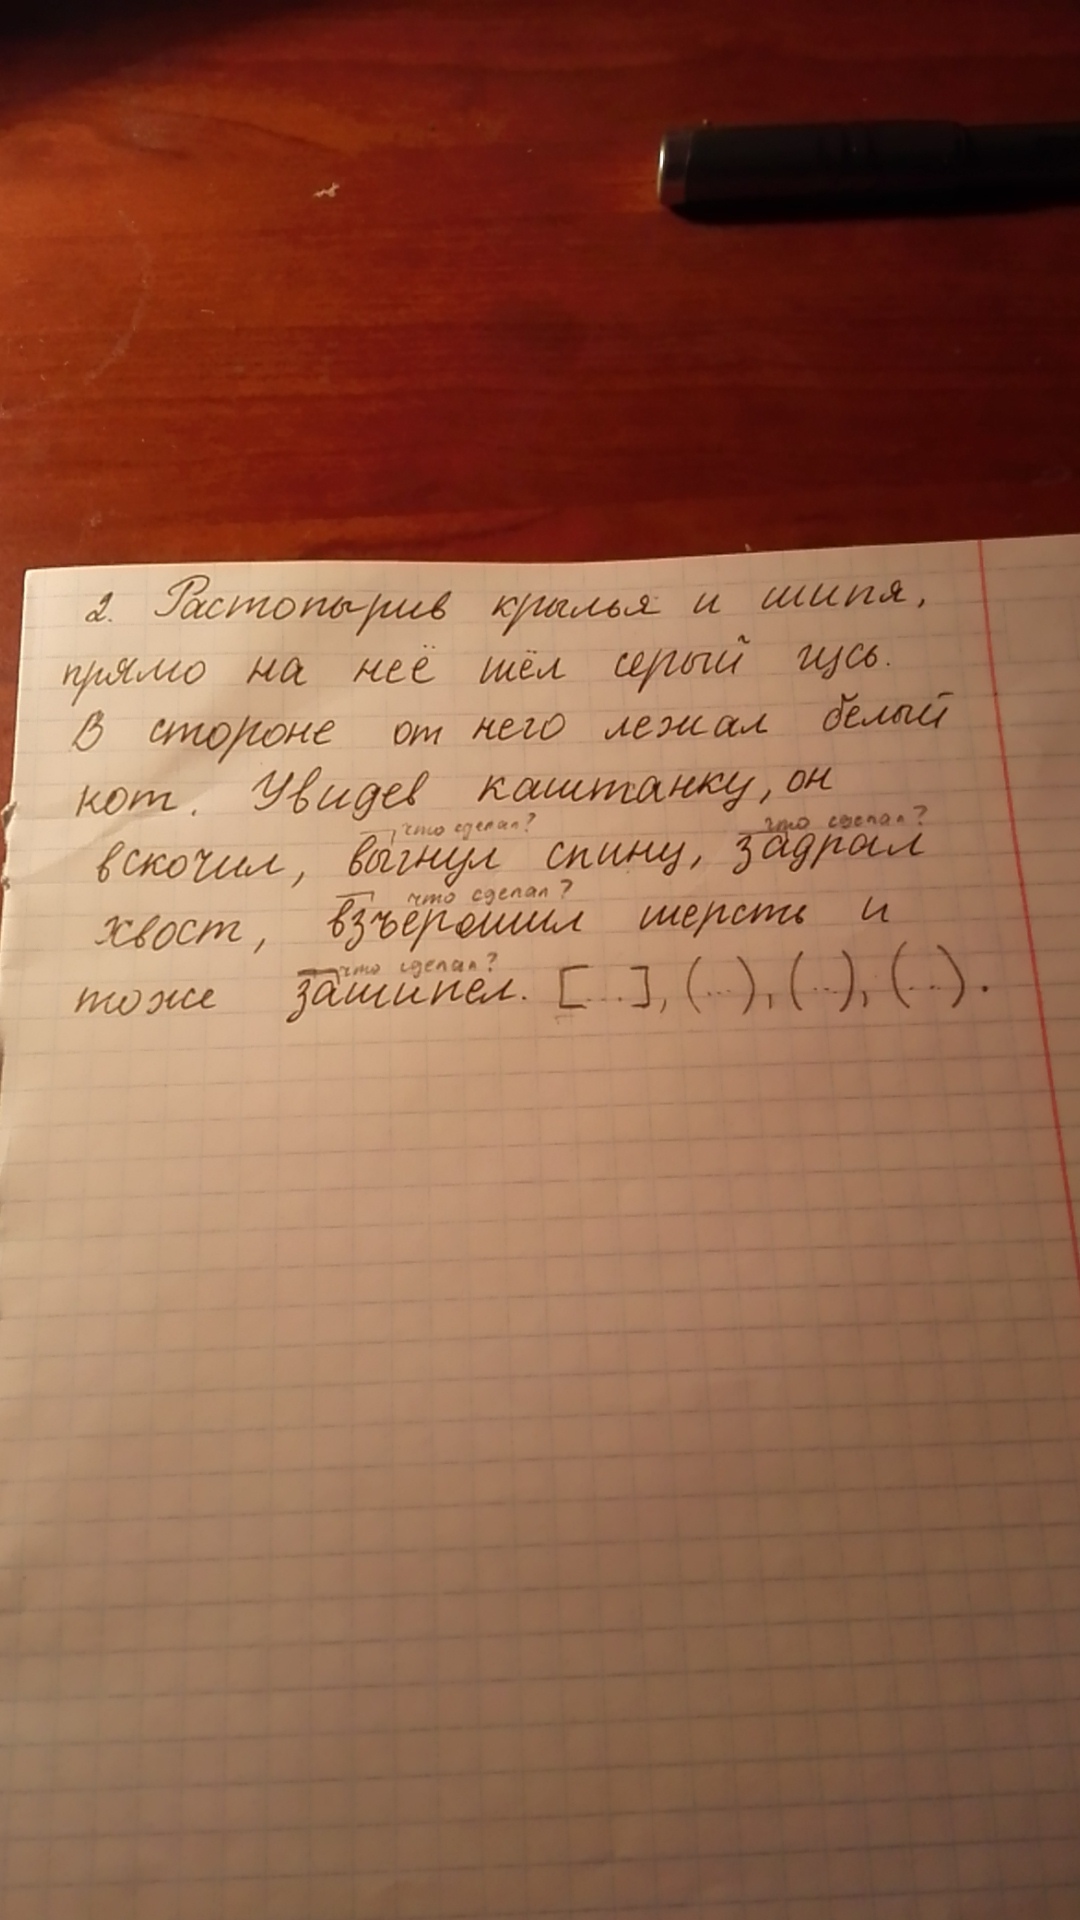 2. Растопырив крылья и шипя,
прямо на неё шёл серый гусь.
В стороне от него лежал белый
кот. Увидев каштанку, он
что сделал? что сделал?
вскочил, выгнул спину, задрал
что сделал?
хвост, взъерошил шерсть и
что сделал?
тоже зашипел. [...], (...), (...), (...).